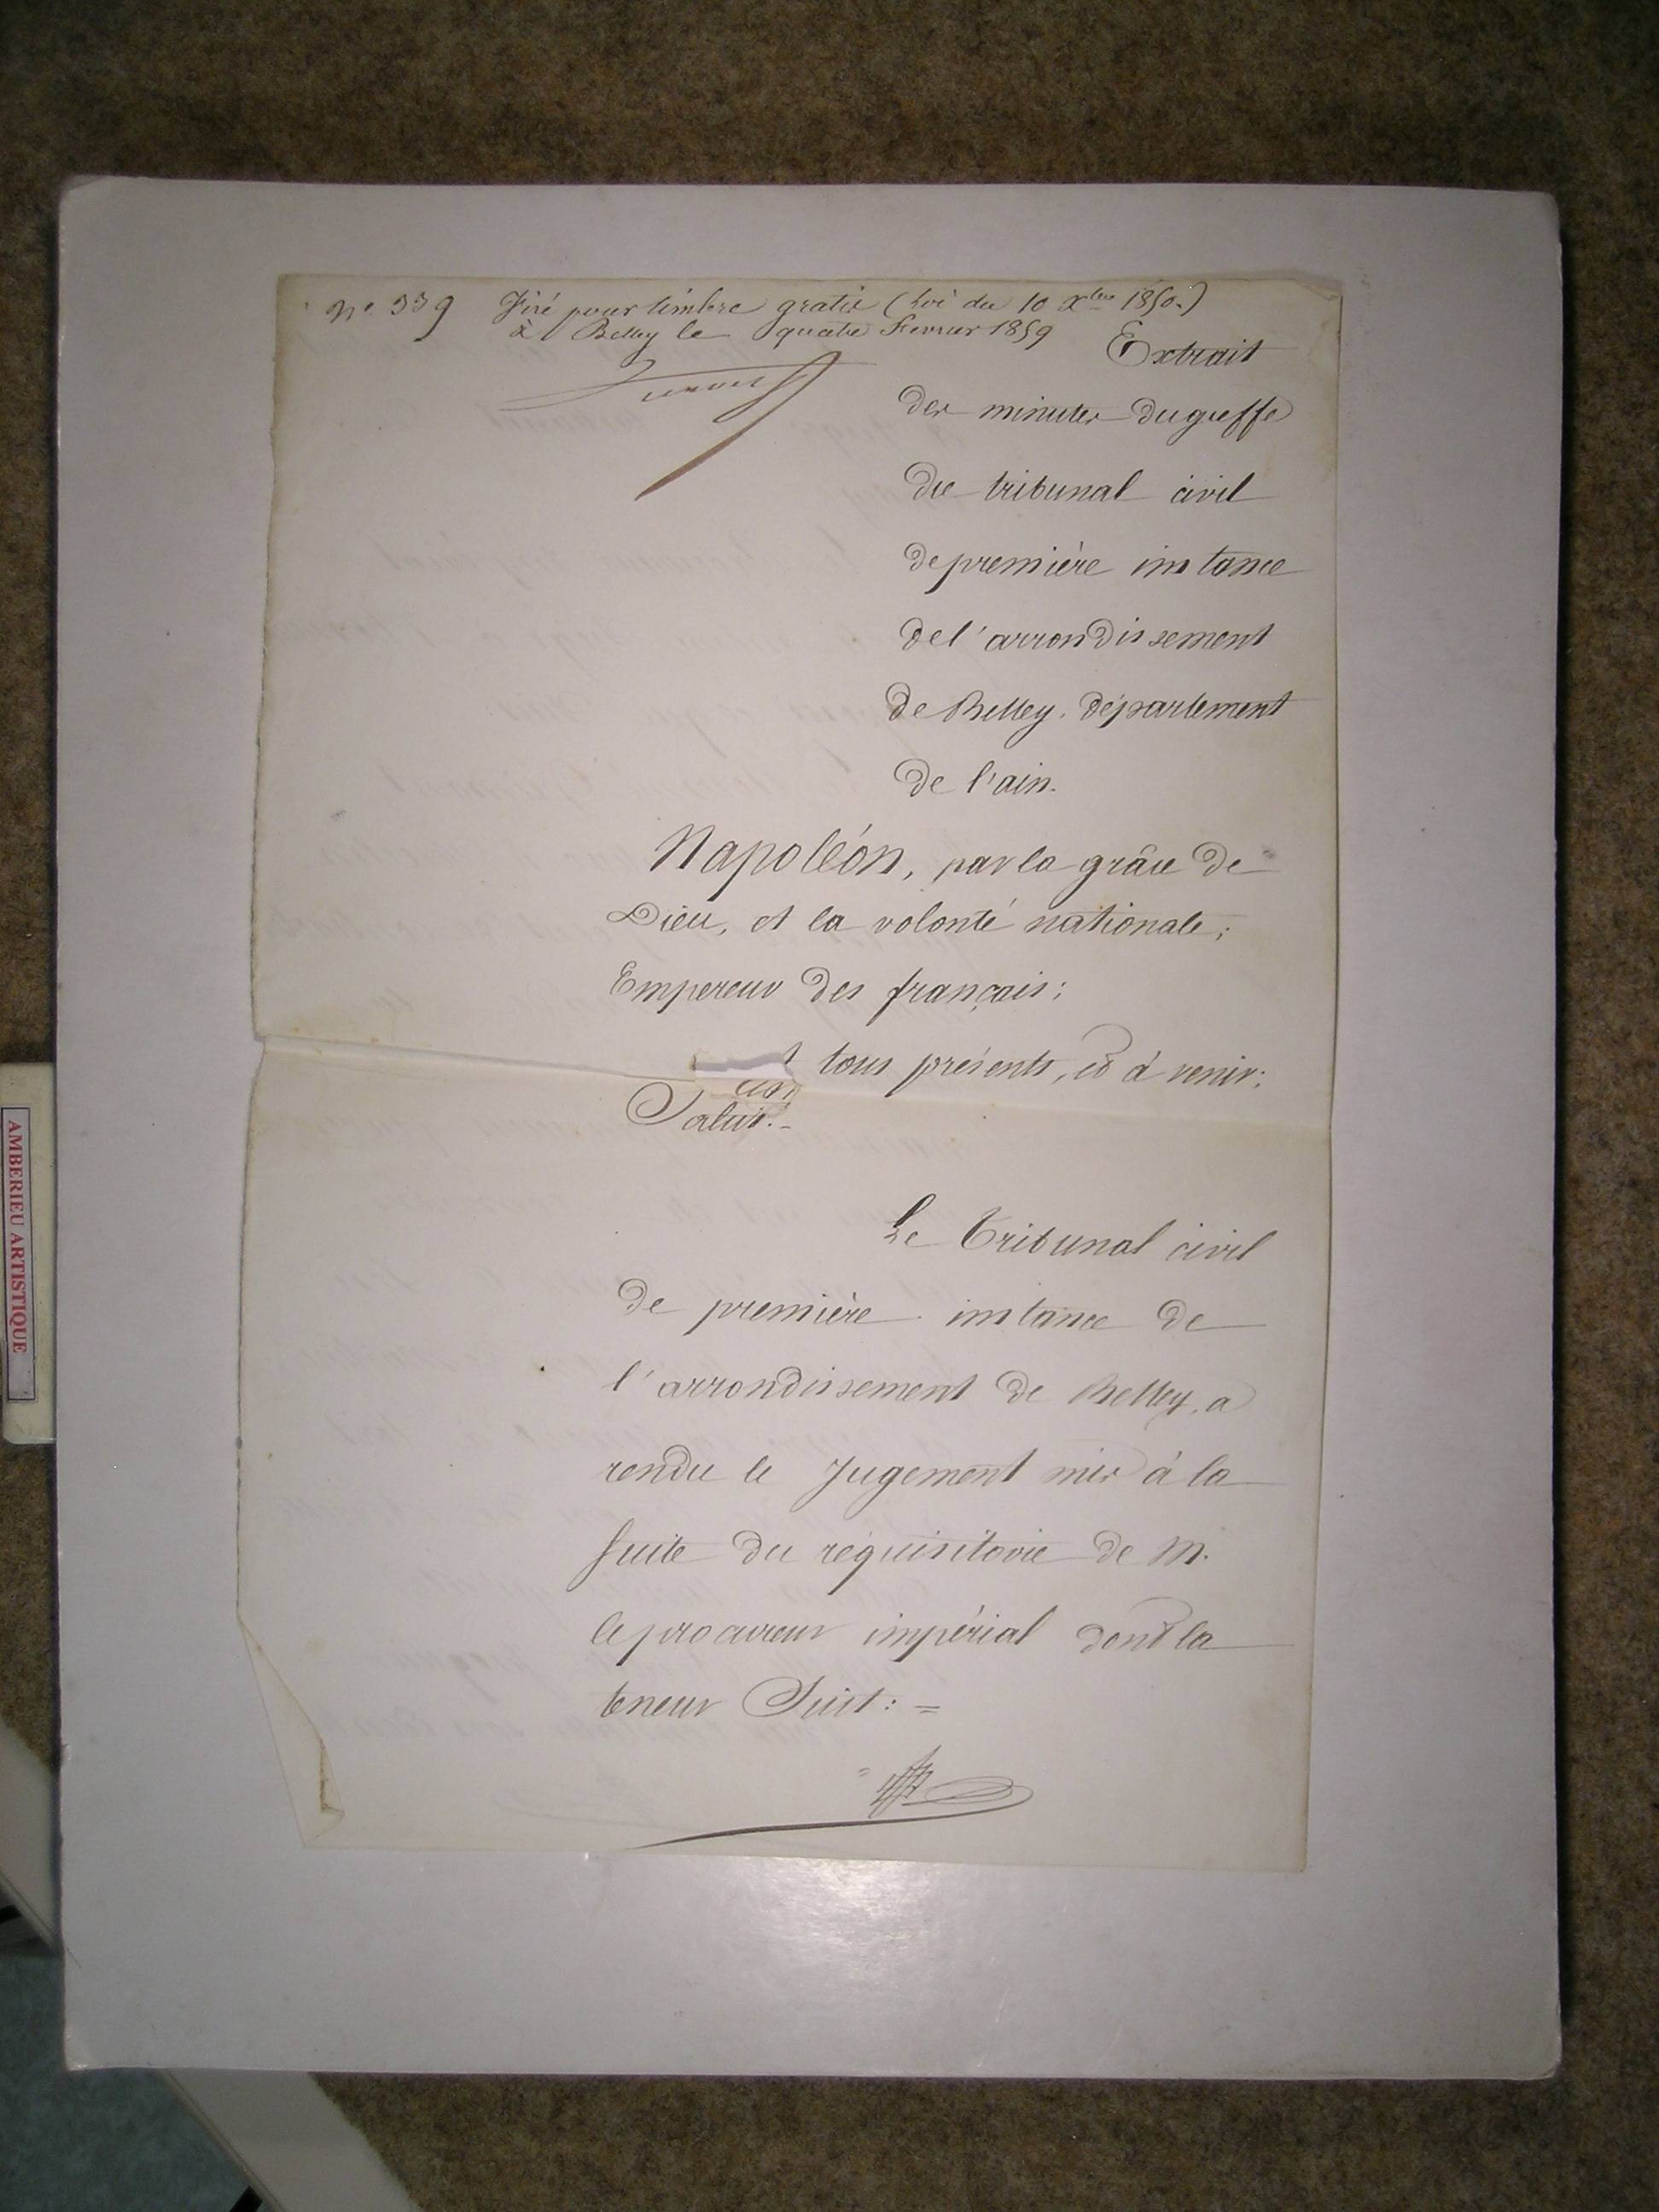 N° 339 Visé pour timbre gratis (Loi du 10 Xbre 1850.)
à Belley le quatre Fevrier 1859
Extrait
des minutes du greffe
du tribunal civil
de première instance
de l'arrondissement
de Belley, département
de l'ain.
Napoléon, par la grâce de
Dieu, et la volonté nationale;
Empereur des français;
tous présents, et à venir;
Salut.-
Le Tribunal civil
de première instance de
l'arrondissement de Belley, a
rendu le Jugement mis à la
suite du réquisitoire de M.
le procureur impérial dont la
teneur Suit: =
AMBERIEU ARTISTIQUE